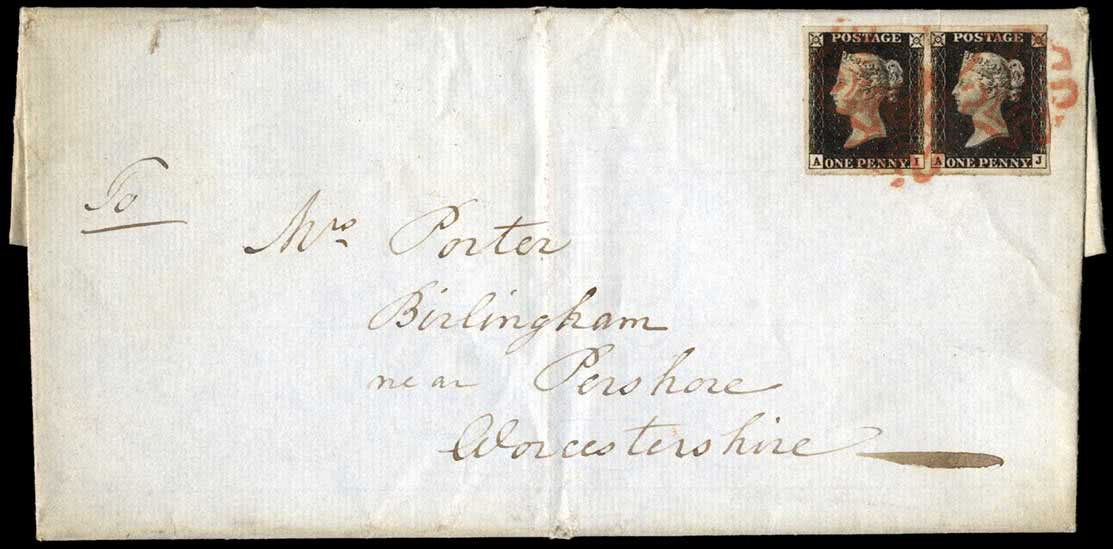 POSTAGE POSTAGE
A ONE PENNY. I A ONE PENNY. J
To
Mrs Porter
Birlingham
near Pershore
Worcestershire